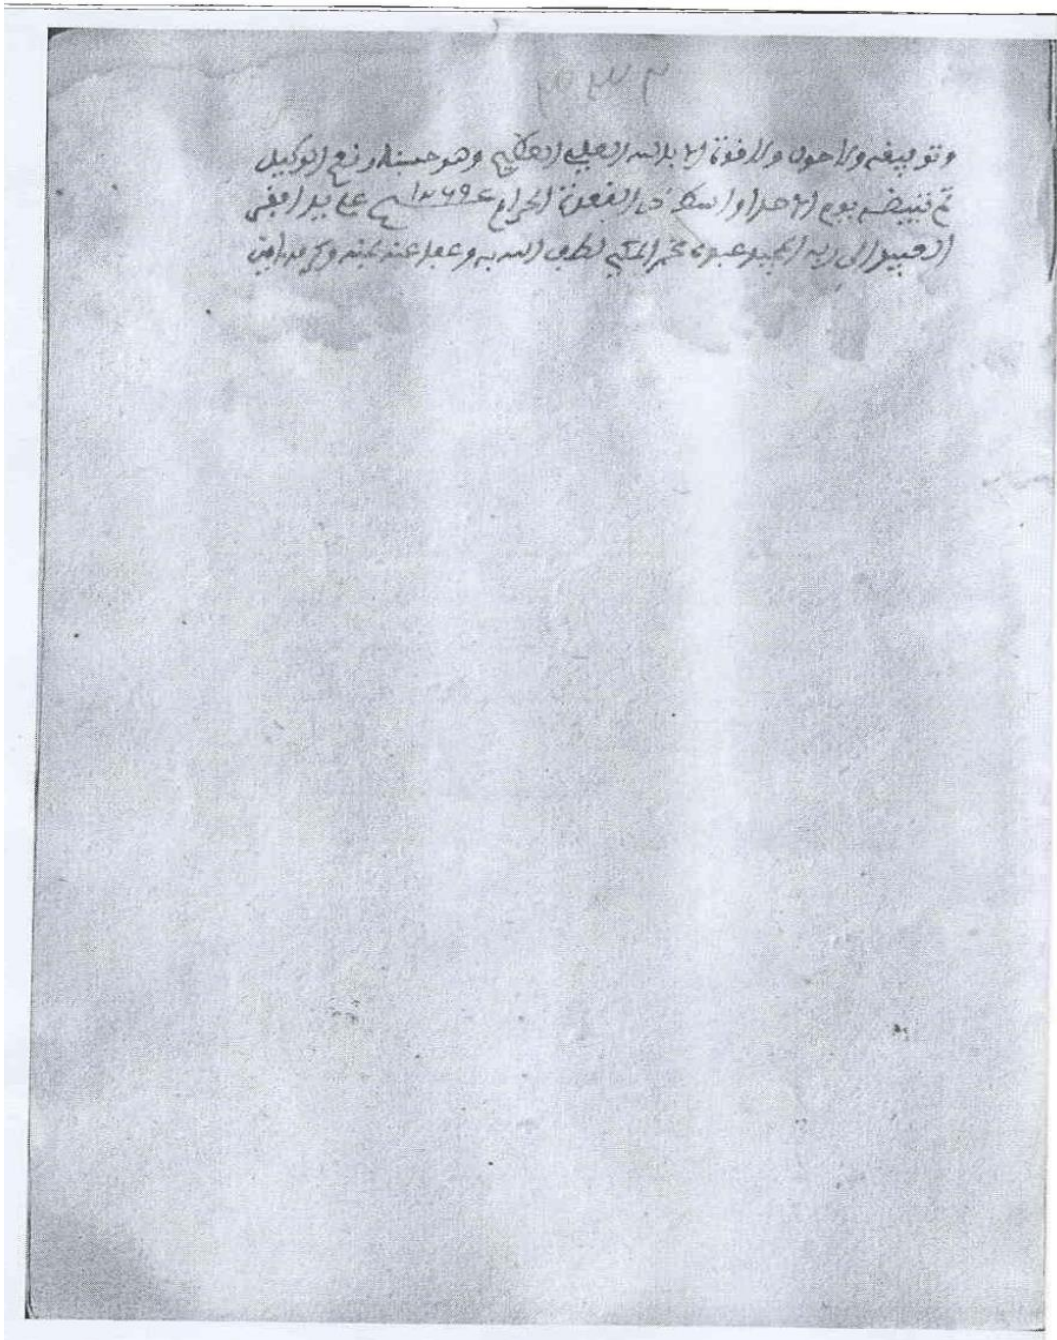 وتوفيقه ولا حول ولا قوة الا بالله العلي العظيم وهو حسبنا ونعم الوكيل
تم تبييضه يوم الاحد اواسط ذي القعدة الحرام 1269 على يد افقر
العبيد الى ربه المجيد عبده محمد المكي لطف الله به وعفا عنه بمنه وكرمه امين